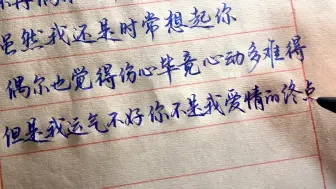 虽然我还是时常想起你
偶尔也觉得伤心毕竟心动多难得
但是我运气不好你不是我爱情的终点